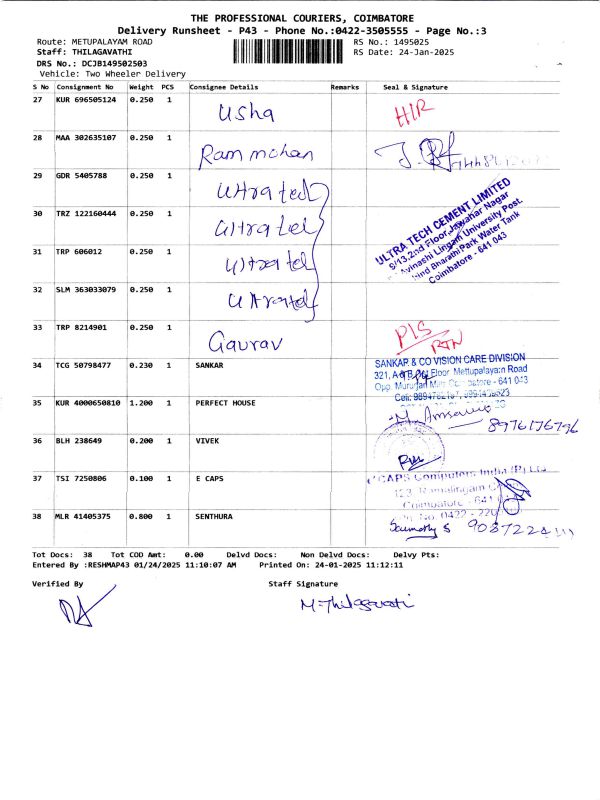 THE PROFESSIONAL COURIERS, COIMBATORE
Delivery Runsheet - P43 - Phone No.:0422-3505555 - Page No.:3
Route: METUPALAYAM ROAD RS No.: 1495025
Staff: THILAGAVATHI RS Date: 24-Jan-2025
DRS No.: DCJB149502503
Vehicle: Two Wheeler Delivery
S No Consignment No Weight PCS Consignee Details Remarks Seal & Signature
27 KUR 696505124 0.250 1 Usha H/R
28 MAA 302635107 0.250 1 Ram mohan
29 GDR 5405788 0.250 1 Ultra tech
30 TRZ 122160444 0.250 1 Ultra tel
31 TRP 606012 0.250 1 Ultratel
32 SLM 363033079 0.250 1 Ultratel
ULTRA TECH CEMENT LIMITED
6/13,2nd Floor,Jawahar Nagar
Avinashi Lingam University Post,
Bharathi Park Water Tank
Coimbatore - 641 043
33 TRP 8214901 0.250 1 Gaurav P/S
RTN
34 TCG 50798477 0.230 1 SANKAR
SANKAR & CO VISION CARE DIVISION
321, Floor Mettupalayam Road
Opp. Murugan Mills - 641 043
35 KUR 4000650810 1.200 1 PERFECT HOUSE
8976176796
36 BLH 238649 0.200 1 VIVEK
37 TSI 7250806 0.100 1 E CAPS
CAPS Computers India (P) Ltd
123, Ramalingam
Coimbatore - 641
38 MLR 41405375 0.800 1 SENTHURA
Tot Docs: 38 Tot COD Amt: 0.00 Delvd Docs: Non Delvd Docs: Delvy Pts:
Entered By :RESHMAP43 01/24/2025 11:10:07 AM Printed On: 24-01-2025 11:12:11
Verified By Staff Signature
M. Thilagavati